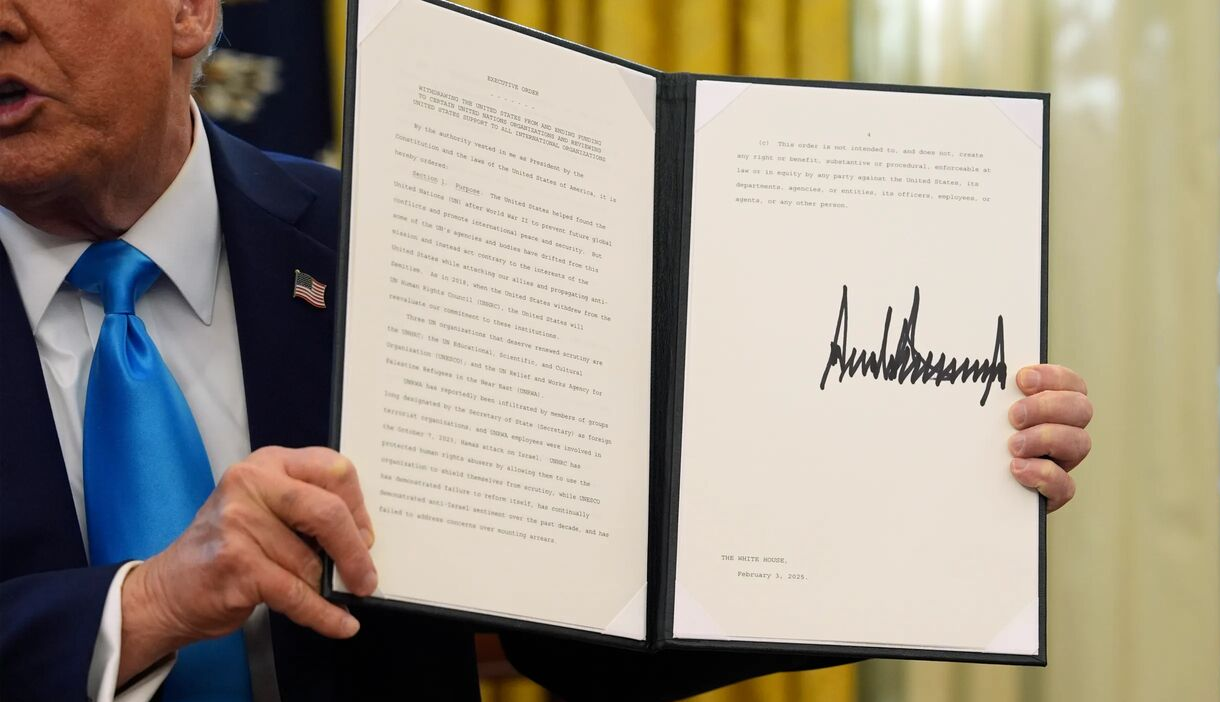 EXECUTIVE ORDER
- - - - - - -
WITHDRAWING THE UNITED STATES FROM AND ENDING FUNDING
TO CERTAIN UNITED NATIONS ORGANIZATIONS AND REVIEWING
UNITED STATES SUPPORT TO ALL INTERNATIONAL ORGANIZATIONS
By the authority vested in me as President by the
Constitution and the laws of the United States of America, it is
hereby ordered:
Section 1. Purpose. The United States helped found the
United Nations (UN) after World War II to prevent future global
conflicts and promote international peace and security. But
some of the UN's agencies and bodies have drifted from this
mission and instead act contrary to the interests of the
United States while attacking our allies and propagating anti-
Semitism. As in 2018, when the United States withdrew from the
UN Human Rights Council (UNHRC), the United States will
reevaluate our commitment to these institutions.
Three UN organizations that deserve renewed scrutiny are
the UNHRC; the UN Educational, Scientific, and Cultural
Organization (UNESCO); and the UN Relief and Works Agency for
Palestine Refugees in the Near East (UNRWA).
UNRWA has reportedly been infiltrated by members of groups
long designated by the Secretary of State (Secretary) as foreign
terrorist organizations, and UNRWA employees were involved in
the October 7, 2023, Hamas attack on Israel. UNHRC has
protected human rights abusers by allowing them to use the
organization to shield themselves from scrutiny, while UNESCO
has demonstrated failure to reform itself, has continually
demonstrated anti-Israel sentiment over the past decade, and has
failed to address concerns over mounting arrears.
4
(c) This order is not intended to, and does not, create
any right or benefit, substantive or procedural, enforceable at
law or in equity by any party against the United States, its
departments, agencies, or entities, its officers, employees, or
agents, or any other person.
THE WHITE HOUSE,
February 3, 2025.